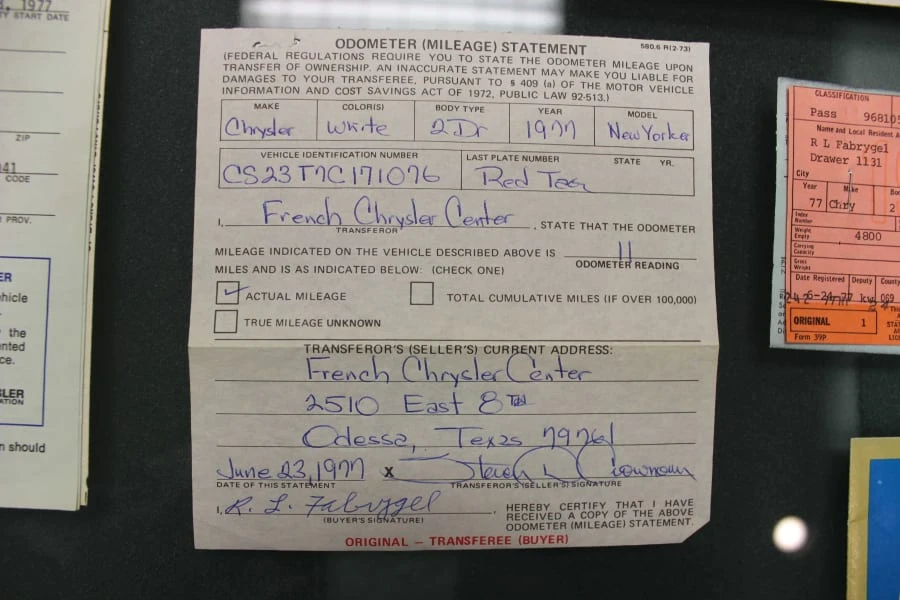 , 1977
TY START DATE
ZIP
41
CODE
PROV.
ER
hicle
r
the
ented
ce.
SLER
ATION
n should
ODOMETER (MILEAGE) STATEMENT
580.6 R(2-73)
(FEDERAL REGULATIONS REQUIRE YOU TO STATE THE ODOMETER MILEAGE UPON
TRANSFER OF OWNERSHIP. AN INACCURATE STATEMENT MAY MAKE YOU LIABLE FOR
DAMAGES TO YOUR TRANSFEREE, PURSUANT TO § 409 (a) OF THE MOTOR VEHICLE
INFORMATION AND COST SAVINGS ACT OF 1972, PUBLIC LAW 92-513.)
MAKE COLOR(S) BODY TYPE YEAR MODEL
Chrysler White 2Dr 1977 New Yorker
VEHICLE IDENTIFICATION NUMBER LAST PLATE NUMBER STATE YR.
CS23T7C171076 Red Tag
I, French Chrysler Center , STATE THAT THE ODOMETER
TRANSFEROR
MILEAGE INDICATED ON THE VEHICLE DESCRIBED ABOVE IS 11
ODOMETER READING
MILES AND IS AS INDICATED BELOW: (CHECK ONE)
ACTUAL MILEAGE TOTAL CUMULATIVE MILES (IF OVER 100,000)
TRUE MILEAGE UNKNOWN
TRANSFEROR'S (SELLER'S) CURRENT ADDRESS:
French Chrysler Center
2510 East 8th
Odessa, Texas 79761
June 23, 1977 x
DATE OF THIS STATEMENT TRANSFEROR'S (SELLER'S) SIGNATURE
I, R. L. Fabrygel , HEREBY CERTIFY THAT I HAVE
(BUYER'S SIGNATURE) RECEIVED A COPY OF THE ABOVE
ODOMETER (MILEAGE) STATEMENT.
ORIGINAL – TRANSFEREE (BUYER)
CLASSIFICATION
Pass 968105
Name and Local Resident A
R L Fabrygel
Drawer 1131
City
Year Make Bo
77 Chry 2
Index
Number
Weight
Empty 4800
Carrying
Capacity
Gross
Weight
Date Registered Deputy County
6-24-77 kw 069
ORIGINAL 1
Form 39P